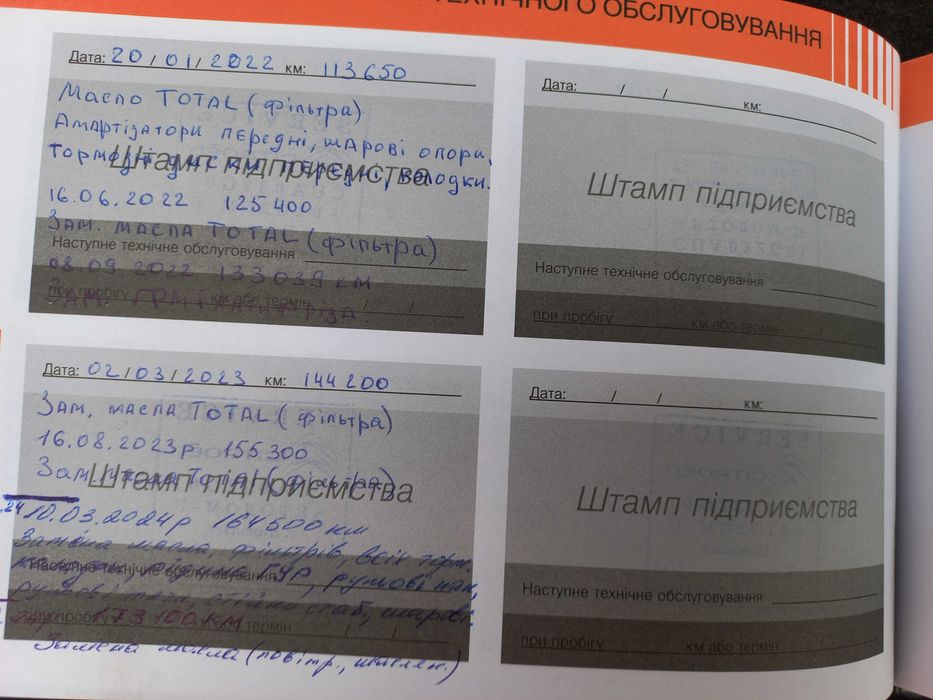 ТЕХНІЧНОГО ОБСЛУГОВУВАННЯ
Дата: 20 / 01 / 2022 км: 113650
Масло TOTAL (фільтра)
Амартізатори передні, шарові опори.
Тормозні диски передні, колодки.
Штамп підприємства
16.06.2022 125400
Зам. масла TOTAL (фільтра)
Наступне технічне обслуговування
08.09.2022 133039 км
при пробігу км або термін / /
Зам.
Дата: 02 / 03 / 2023 км: 144200
Зам. масла TOTAL (фільтра)
16.08.2023р 155300
Зам. масла TOTAL (фільтра)
Штамп підприємства
10.03.2024р 164500 км
Заміна масла, фільтрів, всіх торм.
Наступне технічне обслуговування
ГУР, рульові нак,
рульові тяги, стійки стаб, шарові.
при пробігу 173100 км термін / /
Заміна масла (повітр., маслян.)
Дата: / / км:
Штамп підприємства
Наступне технічне обслуговування
при пробігу км або термін / /
Дата: / / км:
Штамп підприємства
Наступне технічне обслуговування
при пробігу км або термін / /